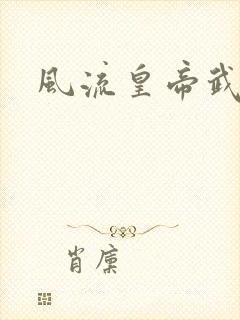 風流皇帝武
肖廩